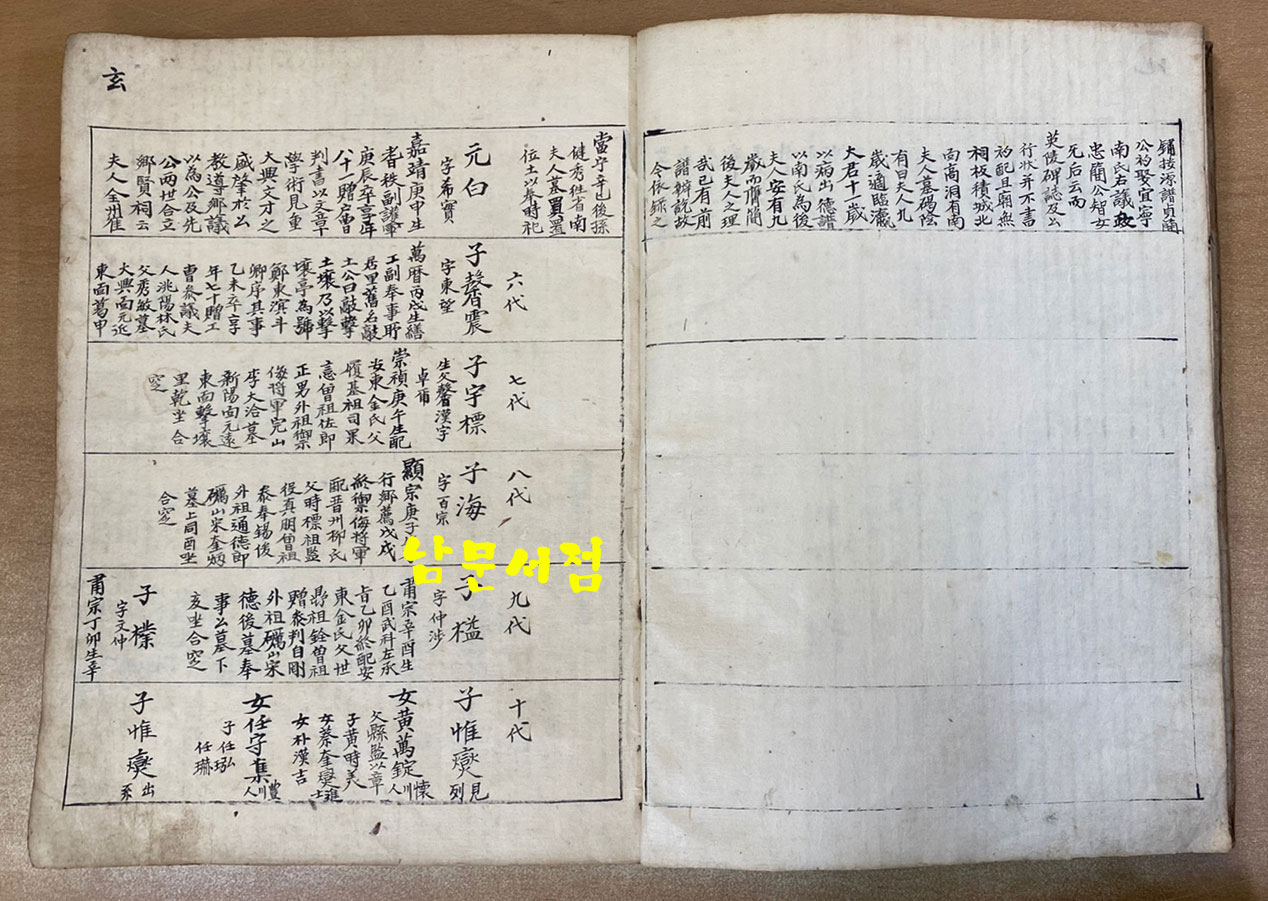 鏞按源譜貞簡
公初娶宜寧
南氏右議政
忠簡公智女
死后云而
英陵碑誌及公
行狀并不書
初配且廟無
祠板積城北
面高洞有南
夫人墓碣陰
有曰夫人九
歲適臨瀛
大君十一歲
以病出德譜
以南氏為後
夫人安有九
歲而膺簡
後夫人之理
哉已有前
譜辨說故
今依錄之
玄
當宁辛巳後孫
健秀徃省南
夫人墓買置
位土以奉時祀
元白
字希實
嘉靖庚申生
耆秩副護軍
庚辰卒享年
八十一贈戶曹
判書以文章
學術見重
大興文才之
盛肇於公
教導鄉議
以為公及先
公兩世合立
鄉賢祠云
夫人全州崔
六代
子馨震
字東望
萬曆丙戌生繕
工副奉事所
居里舊名敲
土公曰敲擊
土壤乃以擊
壤亭為號
鄭東溟斗
卿序其事
乙未卒享
年七十贈工
曹參議夫
人洮陽林氏
父秀敏墓
大興面元近
東面葛甲
七代
子宇標
生父馨漢字
卓甫
崇禎庚午生配
安東金氏父
履基祖司果
憲曾祖佐郎
正男外祖禦
侮將軍完山
李大洽墓
新陽面元遠
東面擊壤
里乾坐合
窆
八代
子海
字百宗
顯宗庚子生
行鄉薦戊戌
終禦侮將軍
配晉州柳氏
父時標祖監
役真明曾祖
參奉錫後
外祖通德郎
礪山宋奎炳
墓上同酉坐
合窆
九代
子槛
字仲涉
肅宗辛酉生
乙酉武科左承
旨乙卯終配安
東金氏父世
鼎祖銓曾祖
贈參判自剛
外祖礪山宋
德後墓奉
事公墓下
亥坐合窆
子檏
字文仲
肅宗丁卯生辛
十代
子惟燮 見列
女黃萬錠 懷川人
父縣監以章
子黃時美
女蔡奎燮 進士
女朴漢吉
女任守集 豊川人
子任珎
任琳
子惟燮 出系
남문서점